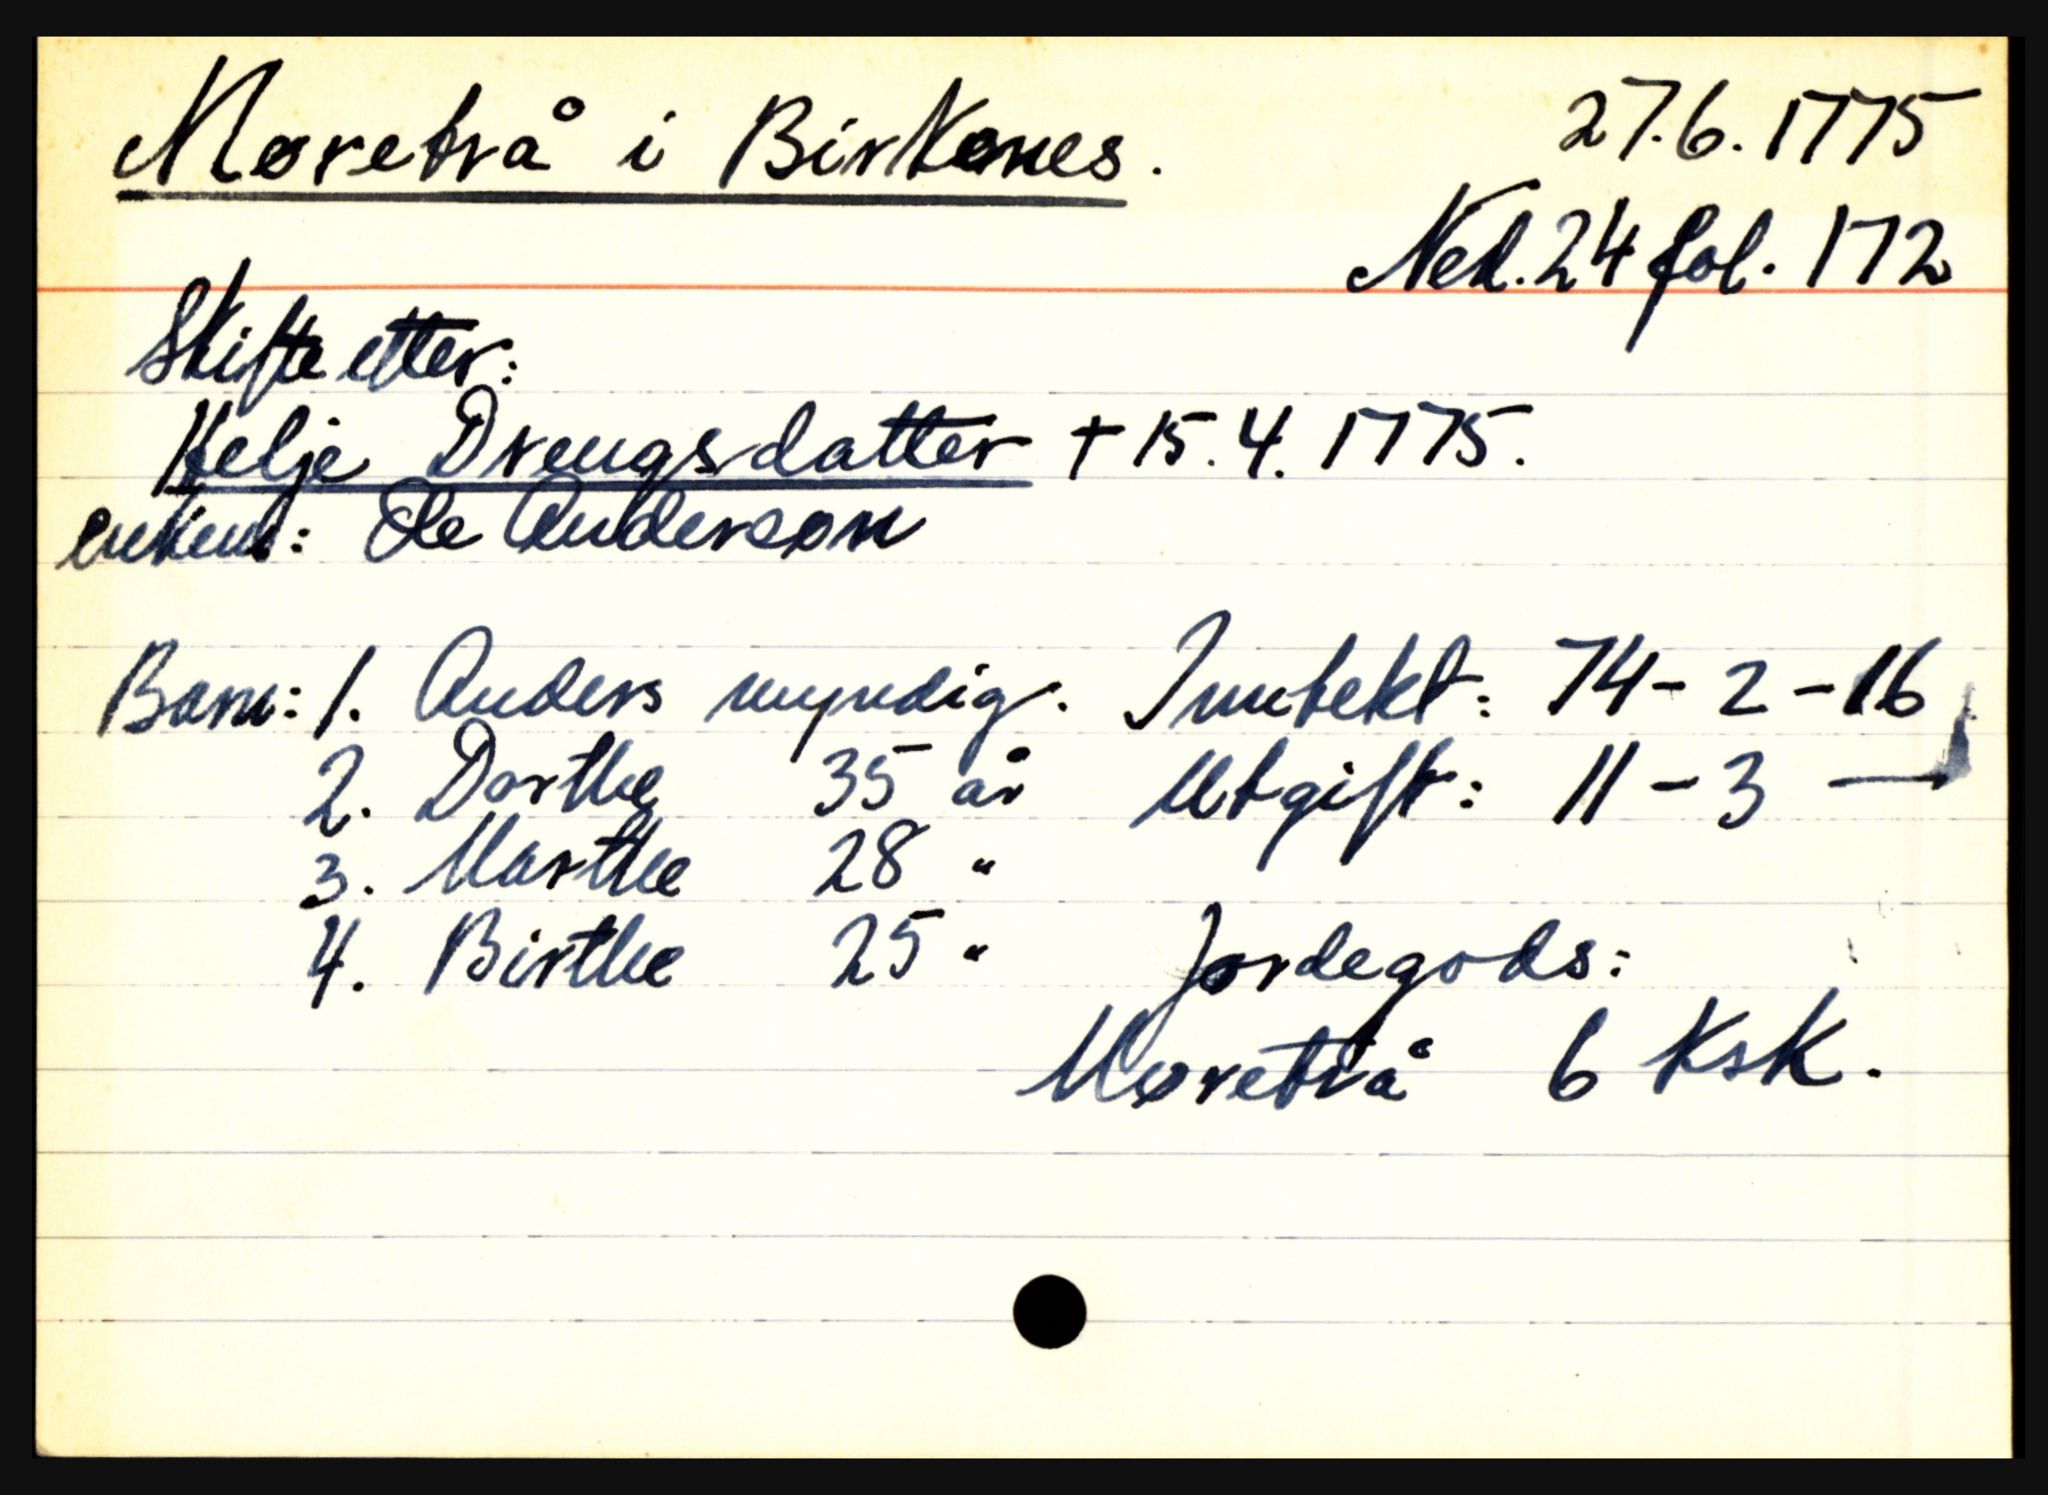 Møretrå i Birkenes.
27.6.1775
Ned. 24 fol. 172
Skifte etter:
Helje Drengsdatter + 15.4.1775.
enkem: Ole Anderson
Barn: 1. Anders myndig. Inntekt: 74 - 2 - 16
2. Dorthe 35 år Utgift: 11 - 3 —
3. Marthe 28 "
4. Birthe 25 " Jordegods:
Møretrå 6 Ksk.